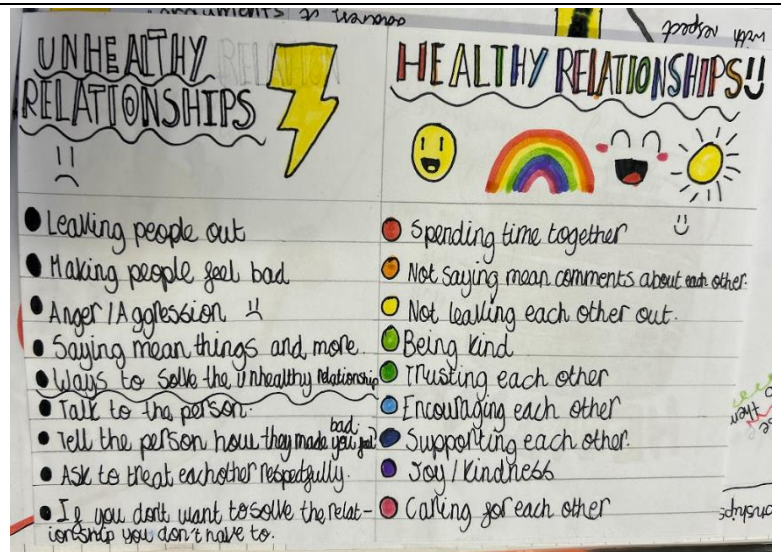 UNHEALTHY
RELATIONSHIPS
Leaving people out
Making people feel bad
Anger / Aggression
Saying mean things and more.
Ways to solve the unhealthy relationship
Talk to the person.
Tell the person how they made you feel bad.
Ask to treat eachother respectfully.
If you dont want to solve the relat-
ionship you don't have to.
HEALTHY RELATIONSHIPS
Spending time together
Not saying mean comments about each other.
Not leaving each other out.
Being kind
Trusting each other
Encouraging each other
Supporting each other.
Joy / Kindness
Caring for each other
with
respect